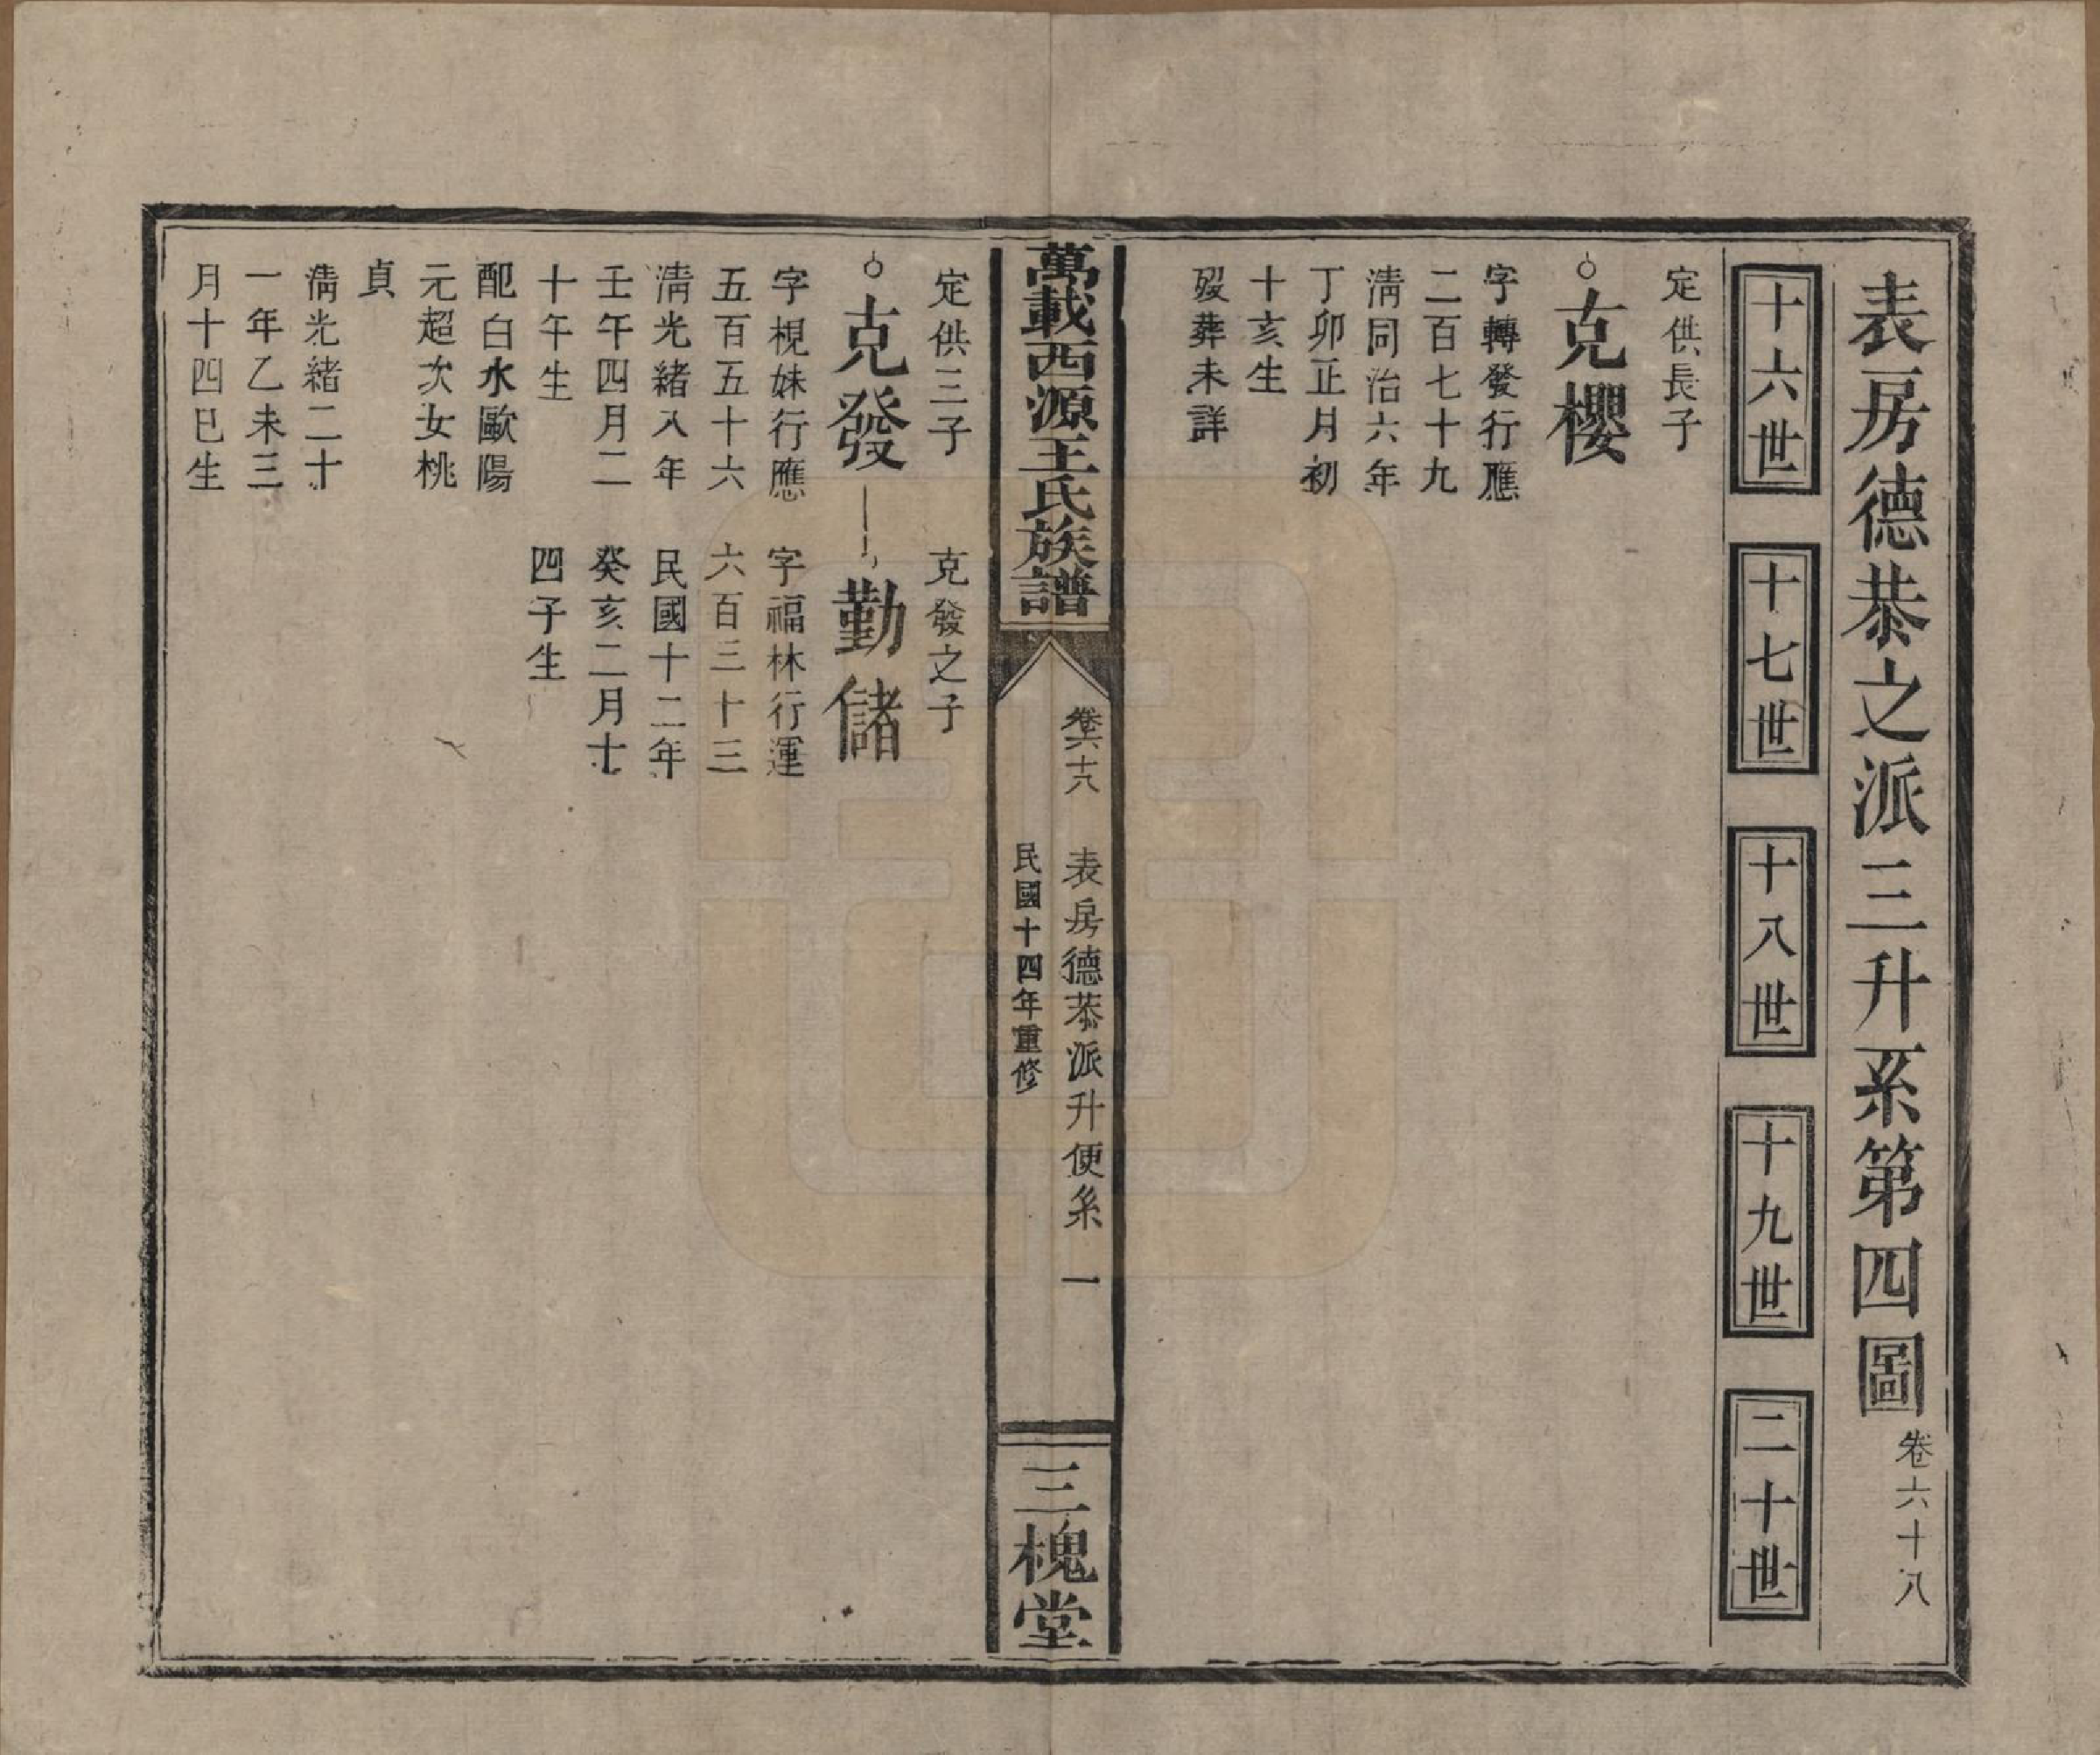 表房德恭之派三升系第四圖 卷六十八
十六世
十七世
十八世
十九世
二十世
定供長子
克櫻
字轉發行應
二百七十九
清同治六年
丁卯正月初
十亥生
歿葬未詳
萬載西源王氏族譜
卷六十八 表房德恭派升便系 一
民國十四年重修
三槐堂
定供三子
克發
字梘妹行應
五百五十六
清光緒八年
壬午四月二
十午生
配白水歐陽
元超次女桃
貞
清光緒二十
一年乙未三
月十四巳生
克發之子
勤儲
字福林行運
六百三十三
民國十二年
癸亥二月十
四子生